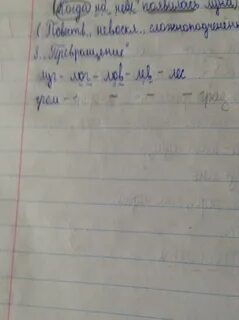 (Когда на небе появилась луна)
(Повеств., невоскл., сложноподчинён
3. "Превращение"
луг - лог - лов - лев - лес
гром - - - - град